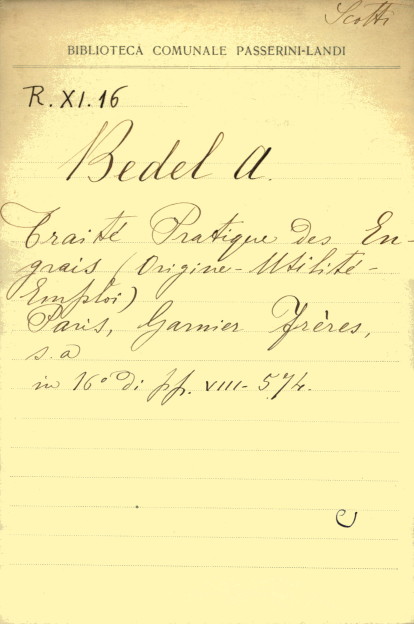 Scotti
BIBLIOTECA COMUNALE PASSERINI-LANDI
R. XI. 16
Bedel A.
Traité Pratique des En-
grais (Origine-Utilité-
Emploi)
Paris, Garnier Frères,
s. a
in 16° di pp. VIII-574.
C